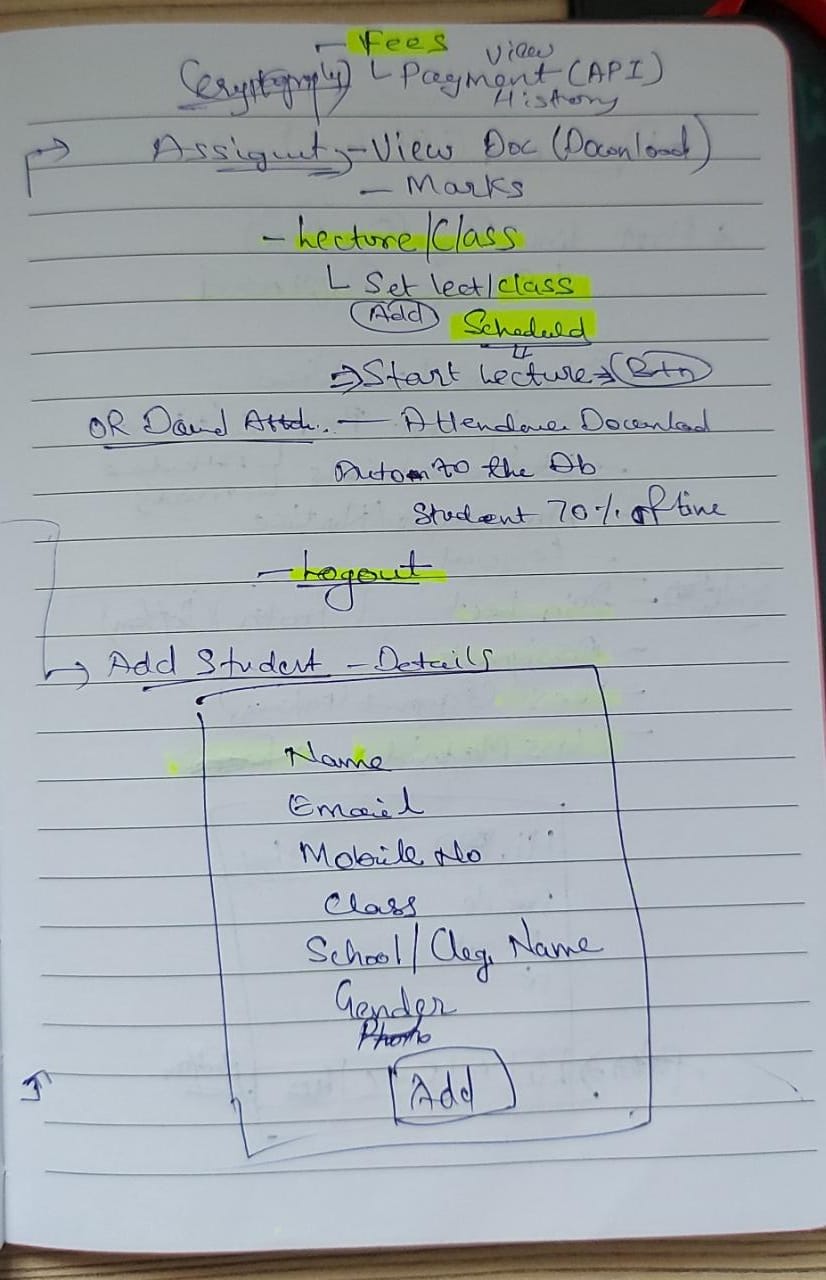 - Fees
(Cryptography) └ Payment View History (API)
→ Assignmt - View Doc (Download)
- Marks
- Lecture/Class
└ Set lect/class
(Add) Scheduld
⇒ Start Lecture ⇒ (Btn)
OR - Attendance Download
Autom to the Db
Student 70% of time
- Logout
→ Add Student - Details
Name
Email
Mobile No
Class
School/Cleg. Name
Gender
Photo
Add